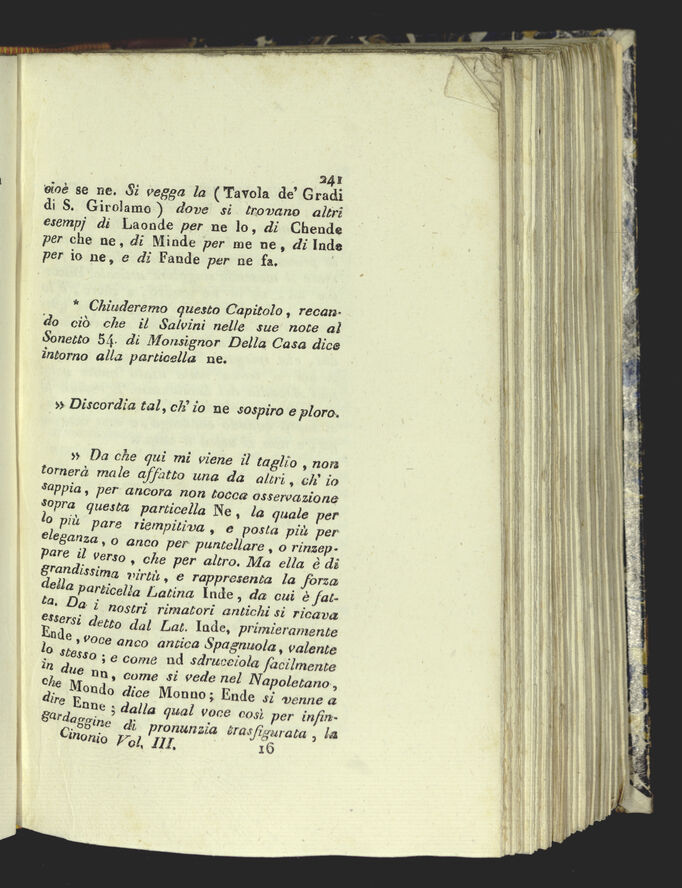 241
cioè se ne. Si vegga la ( Tavola de' Gradi
di S. Girolamo ) dove si trovano altri
esempj di Laonde per ne lo, di Chende
per che ne, di Minde per me ne, di Inde
per io ne, e di Fande per ne fa.
* Chiuderemo questo Capitolo, recan-
do ciò che il Salvini nelle sue note al
Sonetto 54. di Monsignor Della Casa dice
intorno alla particella ne.
» Discordia tal, ch' io ne sospiro e ploro.
» Da che qui mi viene il taglio, non
tornerà male affatto una da altri, ch' io
sappia, per ancora non tocca osservazione
sopra questa particella Ne, la quale per
lo più pare riempitiva, e posta più per
eleganza, o anco per puntellare, o rinzep-
pare il verso, che per altro. Ma ella è di
grandissima virtù, e rappresenta la forza
della particella Latina Inde, da cui è fat-
ta. Da i nostri rimatori antichi si ricava
essersi detto dal Lat. Inde, primieramente
Ende, voce anco antica Spagnuola, valente
lo stesso; e come nd sdrucciola facilmente
in due nn, come si vede nel Napoletano,
che Mondo dice Monno; Ende si venne a
dire Enne; dalla qual voce così per infin-
gardaggine di pronunzia trasfigurata, la
Cinonio Vol. III. 16